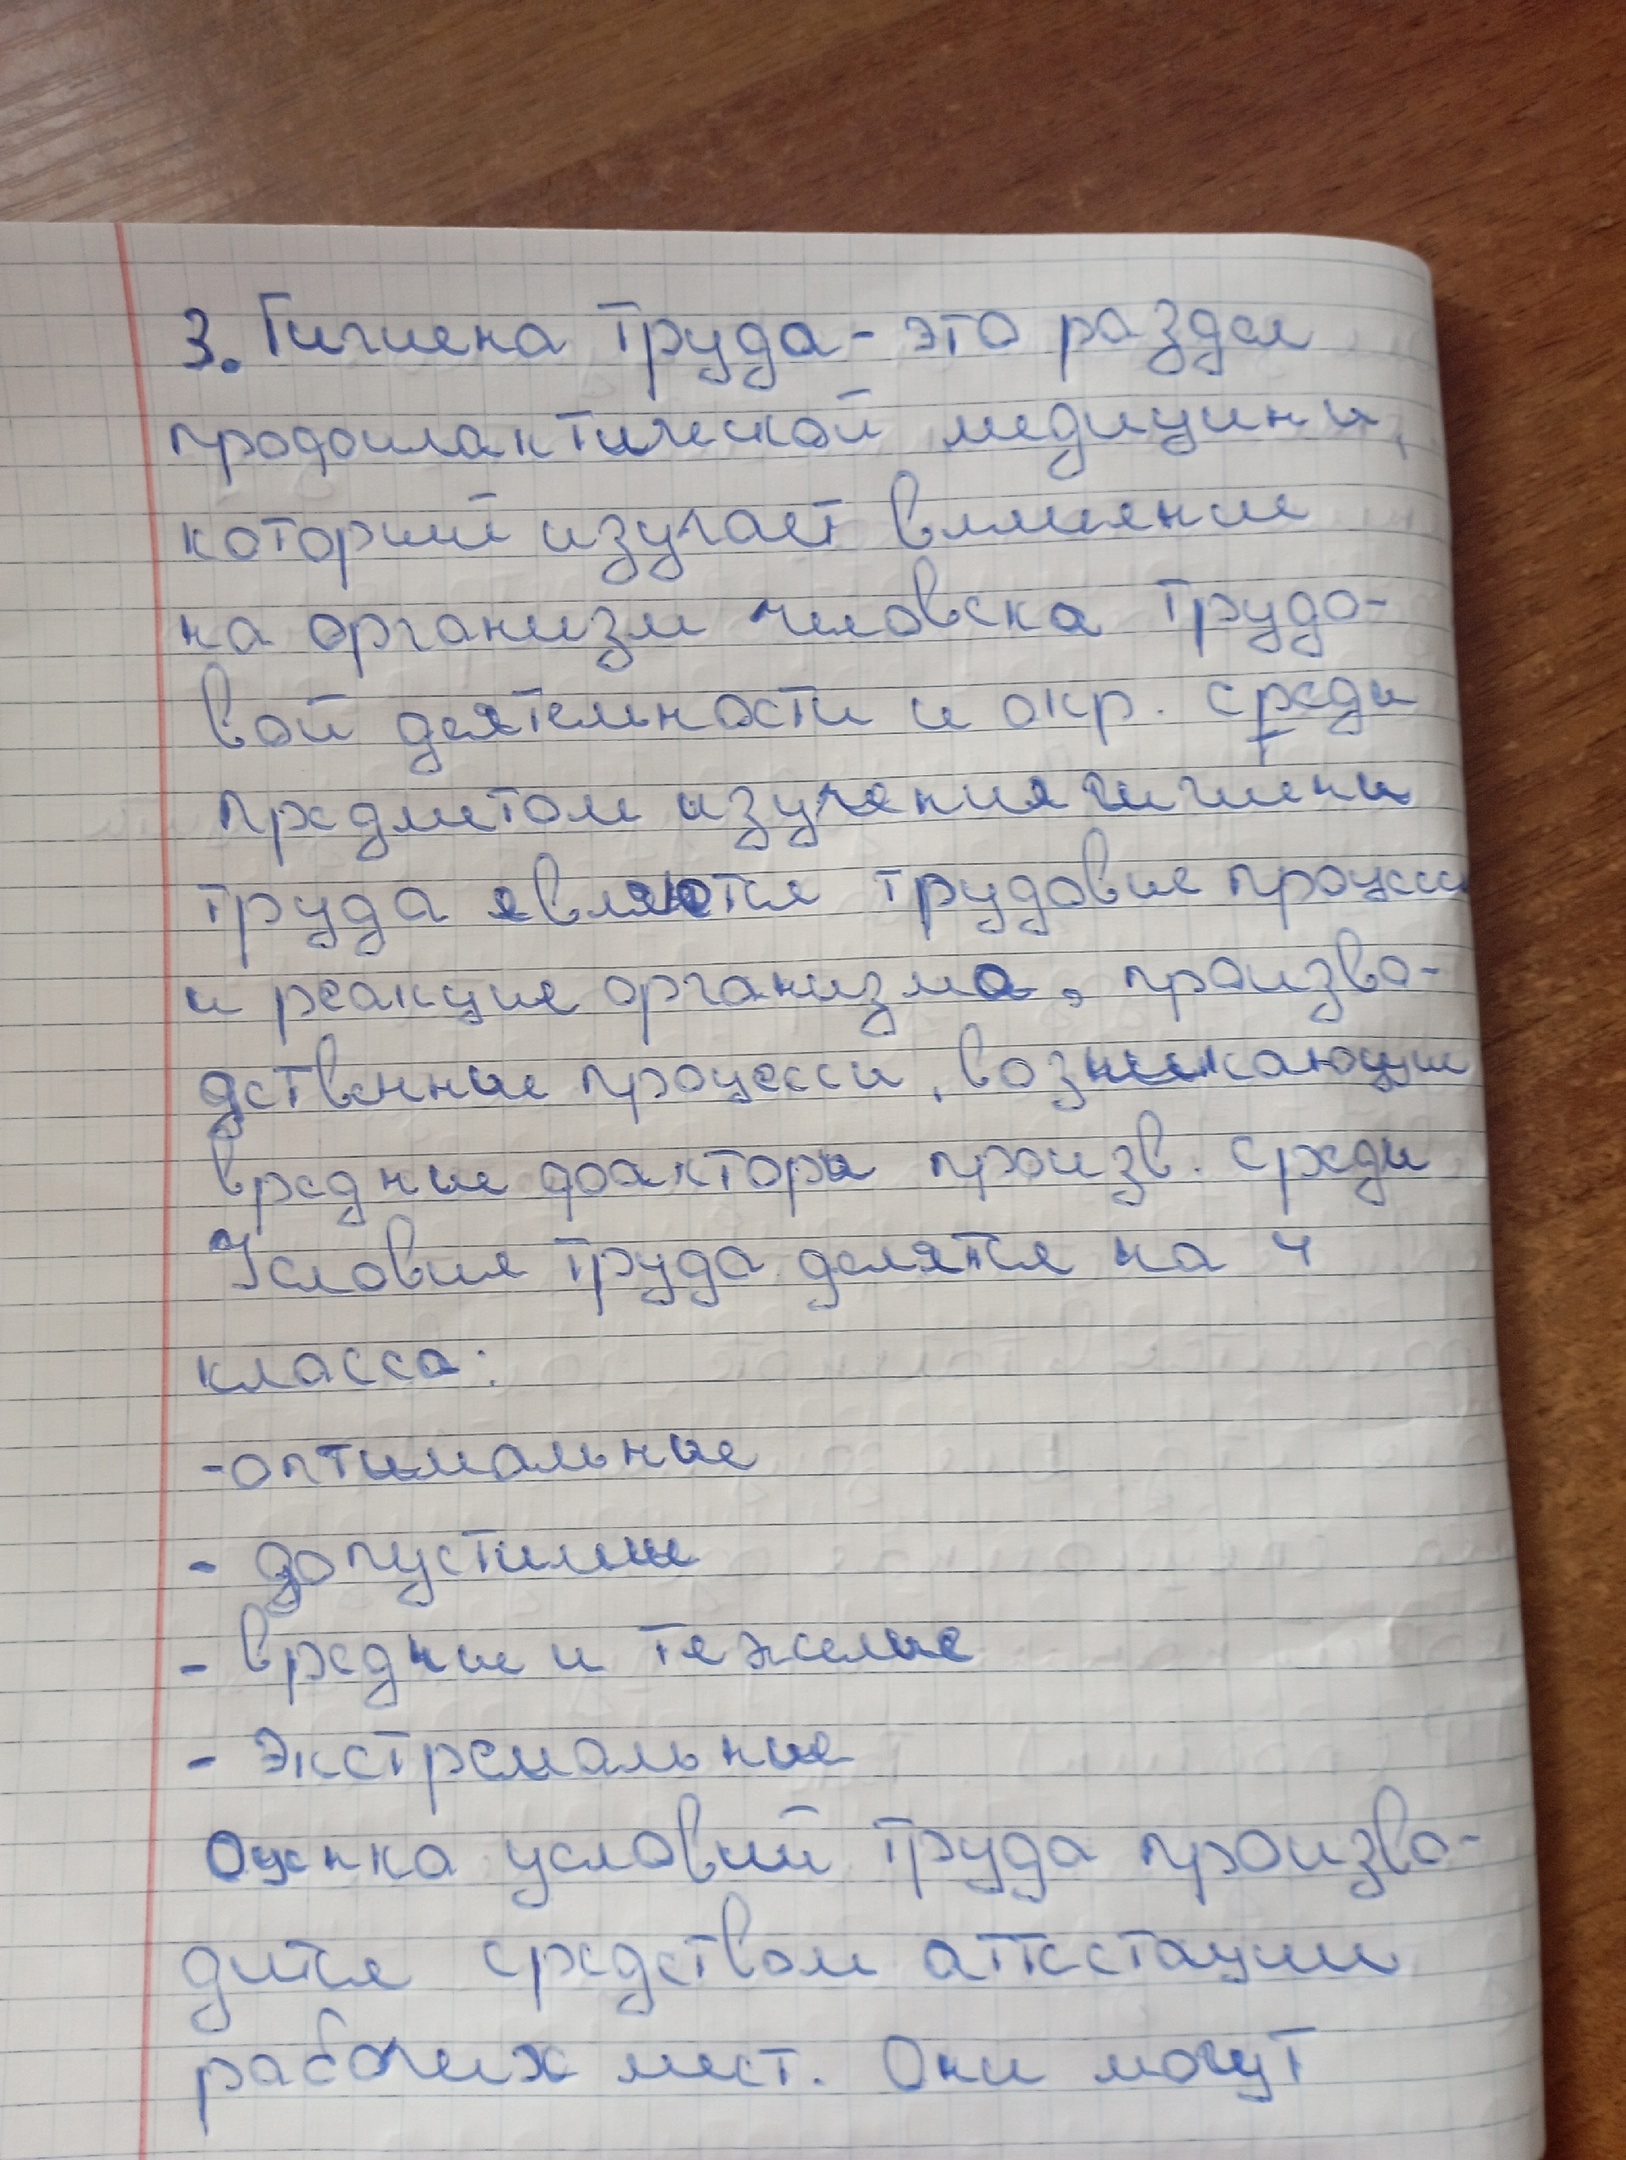 3. Гигиена труда - это раздел
профилактической медицины,
который изучает влияние
на организм человека трудо-
вой деятельности и окр. среды
предметом изучения гигиены
труда являются трудовые процессы
и реакции организма, произво-
дственные процессы, возникающие
вредные факторы произв. среды
Условия труда делятся на 4
класса:
- оптимальные
- допустимые
- вредные и тежелые
- экстремальные
Оценка условий труда произво-
дится средством аттестации
рабочих мест. Они могут